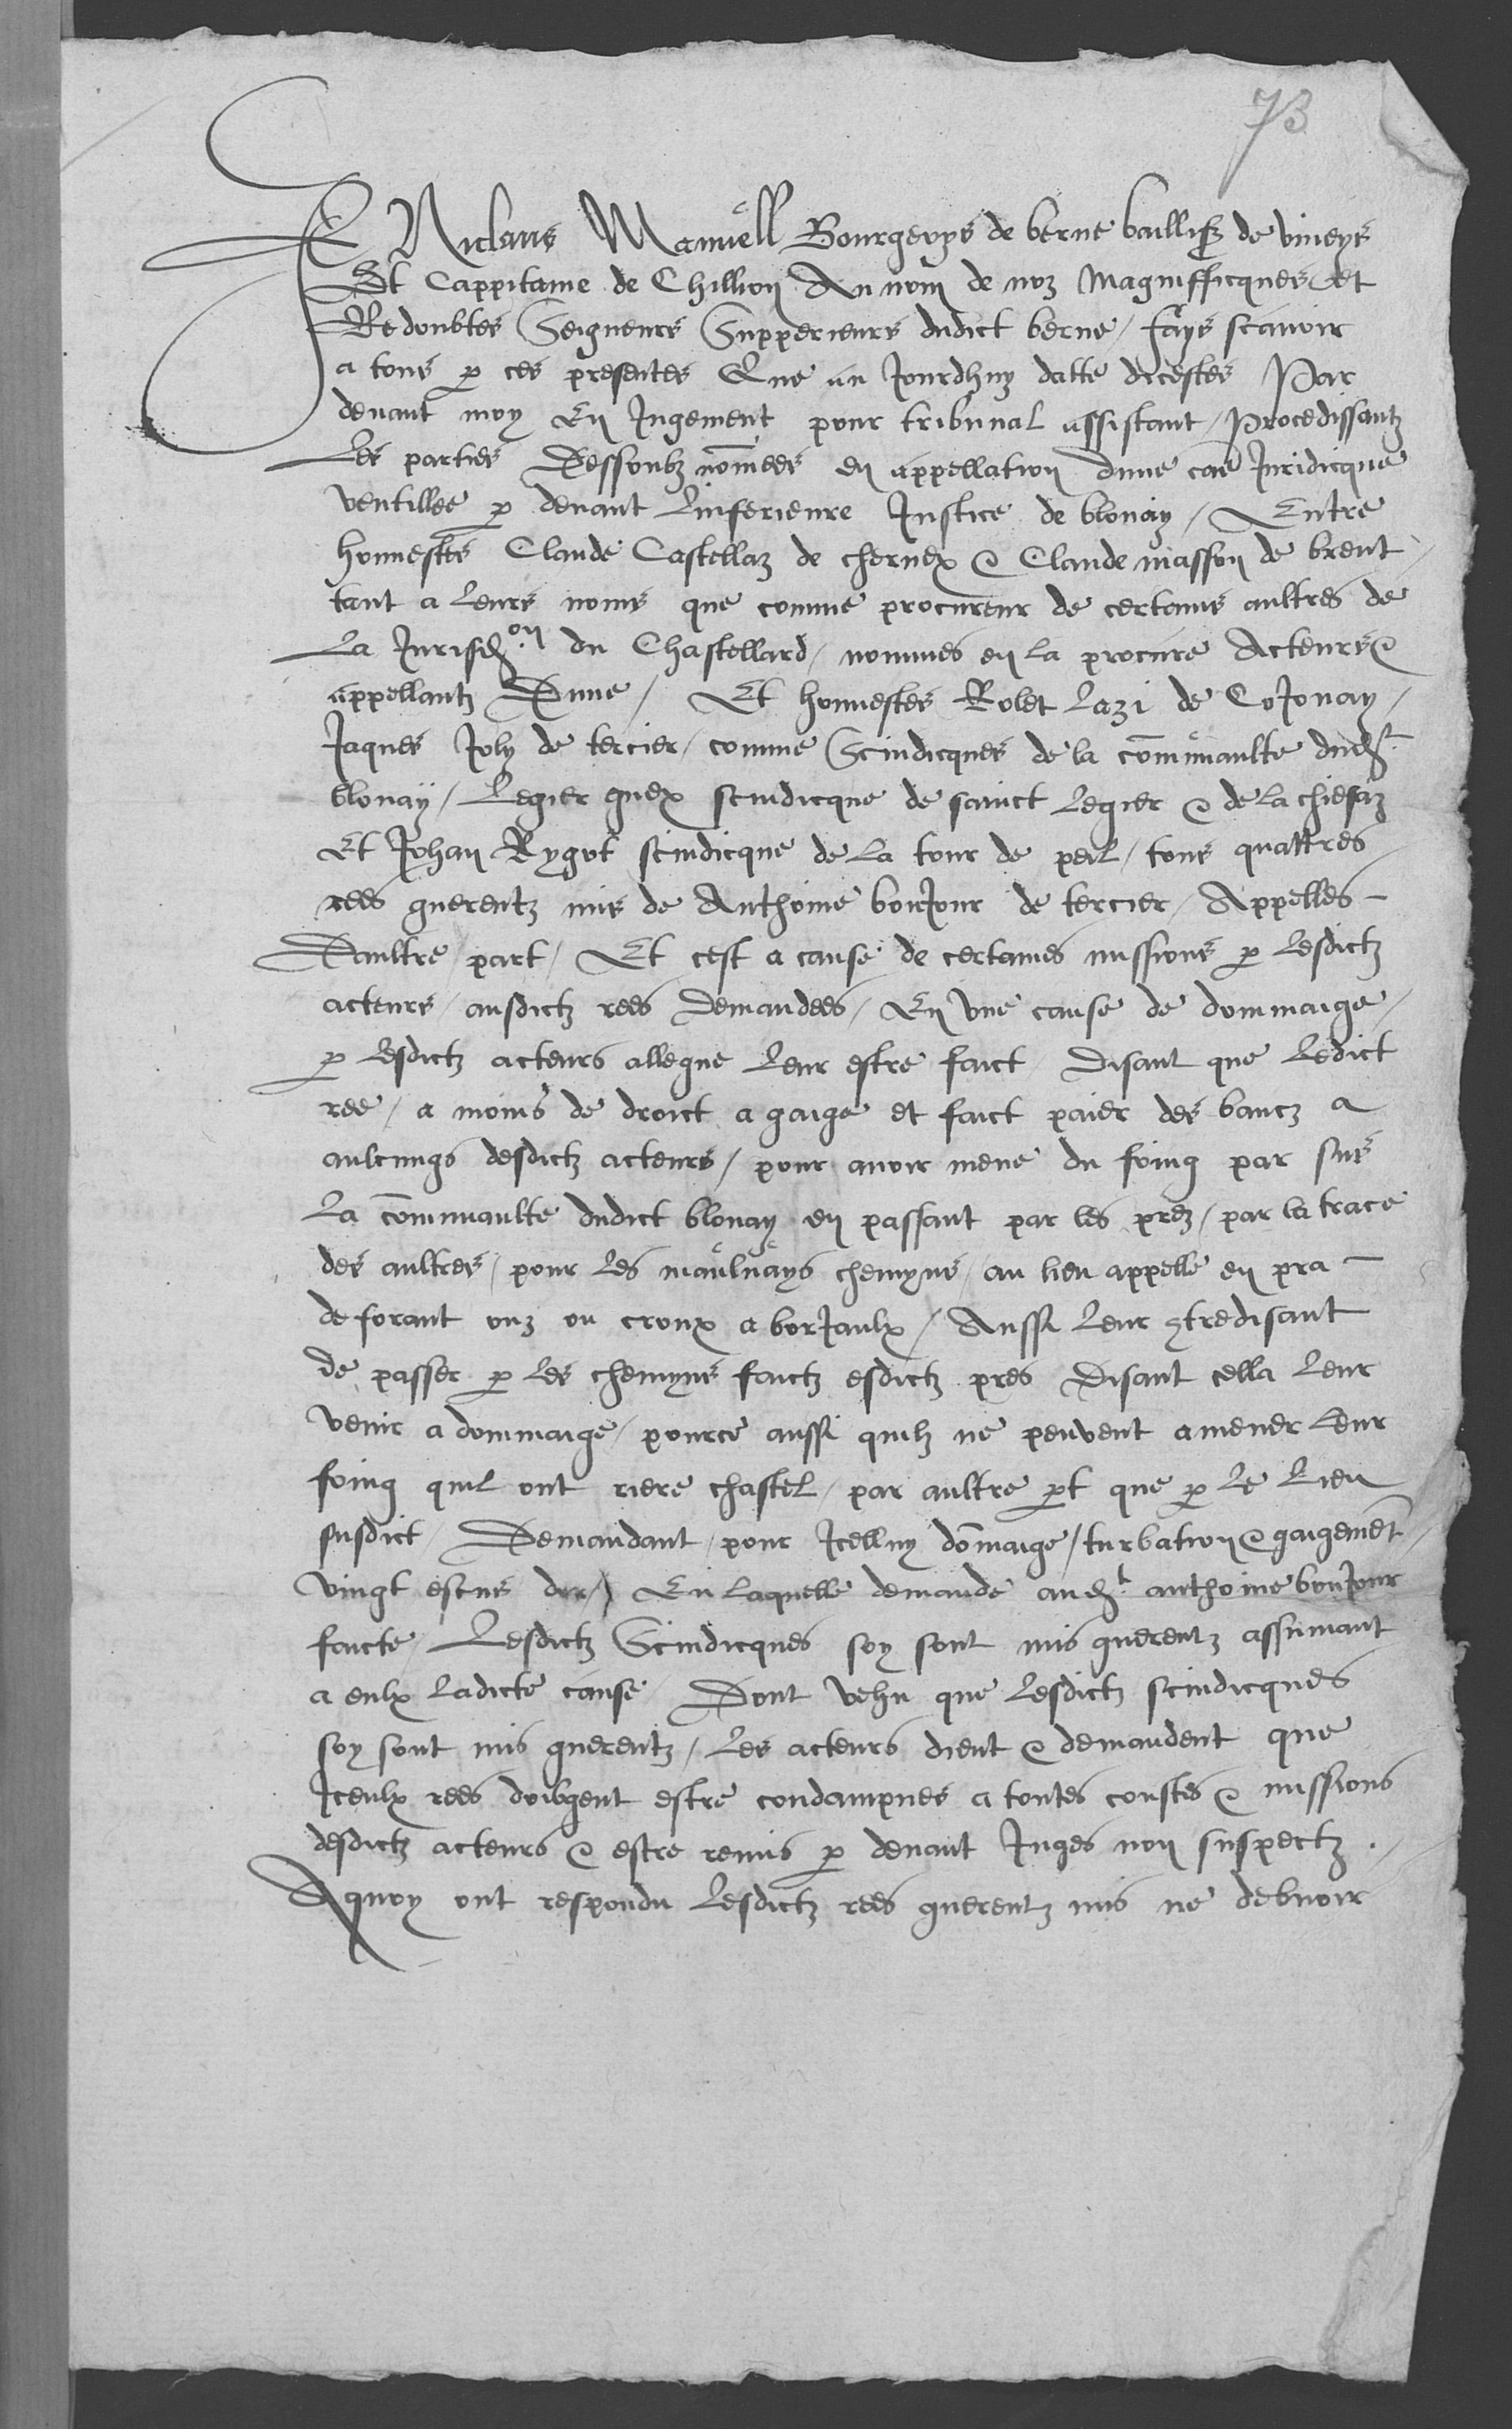 73
Je Niclaus Manuell Bourgeoys de berne baillifz de viveys
Et Cappitaine de Chillion Au nom de noz Magnifficques et
Redoubtes Seigneurs Supperieurs dudict berne / fays scavoir
a tous p ces presentes Que au Jourdhuy datte dicestes Par
devant moy En Jugement pour tribunal assistant / Procedissantz
Les parties Dessoubz nommees en appellation dune cae Juridicque
ventillee p devant Linferieure Justice de blonay / Entre
honnestes Claude Castellaz de chernex & Claude masson de brent
tant a leurs noms que comme procureur de certains aultres de
La Jurisd.on du Chastellard / nommes en la procure Acteurs &
appellantz Dune / Et honnestes Rolet Lazi de CoJonay /
Jaques Joly de tercier / comme Scindicques de la communaulte dud.t
blonay / Legier guex scindicque de sainct Legier & de la chiesaz
Et Johan Rygot scindicque de la tour de peil / tous quattres
rees guerentz mis de Anthoine bonJour de tercier / Appelles -
Daultre part / Et cest a cause de certaines missions p lesdictz
acteurs / ausdictz rees demandees / En une cause de dommaige /
p lesdictz acteurs allegue leur estre faict / Disant que ledict
ree / a moins de droict a gaige et faict paier des bancz a
aulcungs desdictz acteurs / pour avoir mene du foing par sus
La communaulte dudict blonay en passant par les prez / par la trace
des aultres / pour les maulvays chemyns / au lieu appelle en pra -
de forant ouz ou croux a borJaulx / Aussi leur 9tredisant
de passer p les chemyns faictz esdictz pres Disant cella leur
venir a dommaige / pource aussi quilz ne peuvent amener leur
foing quil ont riere chastel / par aultre pt que p le Lieu
susdict / Demandant / pour Jcelluy dommaige / turbation & gaigement /
vingt escus dor / En laquelle demande aud.t anthoine bonJour
faicte / Lesdictz Scindicques soy sont mis guerentz assumant
a eulx ladicte cause / Dont vehu que lesdictz scindicques
soy sont mis guerentz / Les acteurs dient & demandent que
Jceulx rees doibgent estre condampnes a toutes coustes & missions
desdictz acteurs & estre remis p devant Juges non suspectz .
A quoy ont respondu lesdictz rees guerentz mis ne debvoir